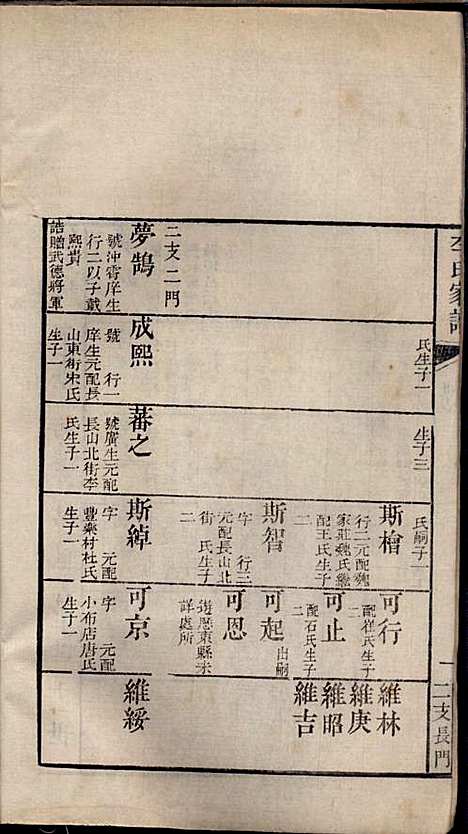 李氏家譜
二支長門
氏生子一
生子三
氏嗣子一
二支二門
夢鵠
號沖霄庠生
行二以子戴
熙貴
誥贈武德將軍
成熙
號 行一
庠生元配長
山東街宋氏
生子一
蕃之
號廣生元配
長山北街李
氏生子一
斯檜
行二元配魏
家莊魏氏繼
配王氏生子
二
斯智
字 行三
元配長山北
街 氏生子
二
斯綽
字 元配
豐樂村杜氏
生子一
可行
配崔氏生子
二
可止
配石氏生子
二
可起
出嗣
可恩
遊歷東縣未
詳處所
可京
字 元配
小布店唐氏
生子一
維林
維庚
維昭
維吉
維綏